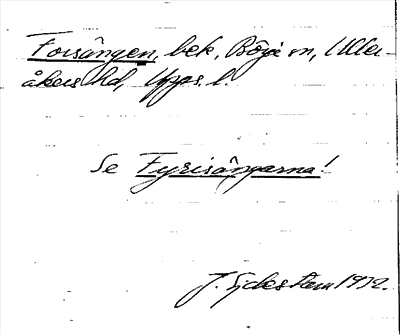 Forsången, bek, Börje sn, Uller-
åkers hd, Upps. l.
Se Fyrisångarna!
J. Sjdestam 1932.